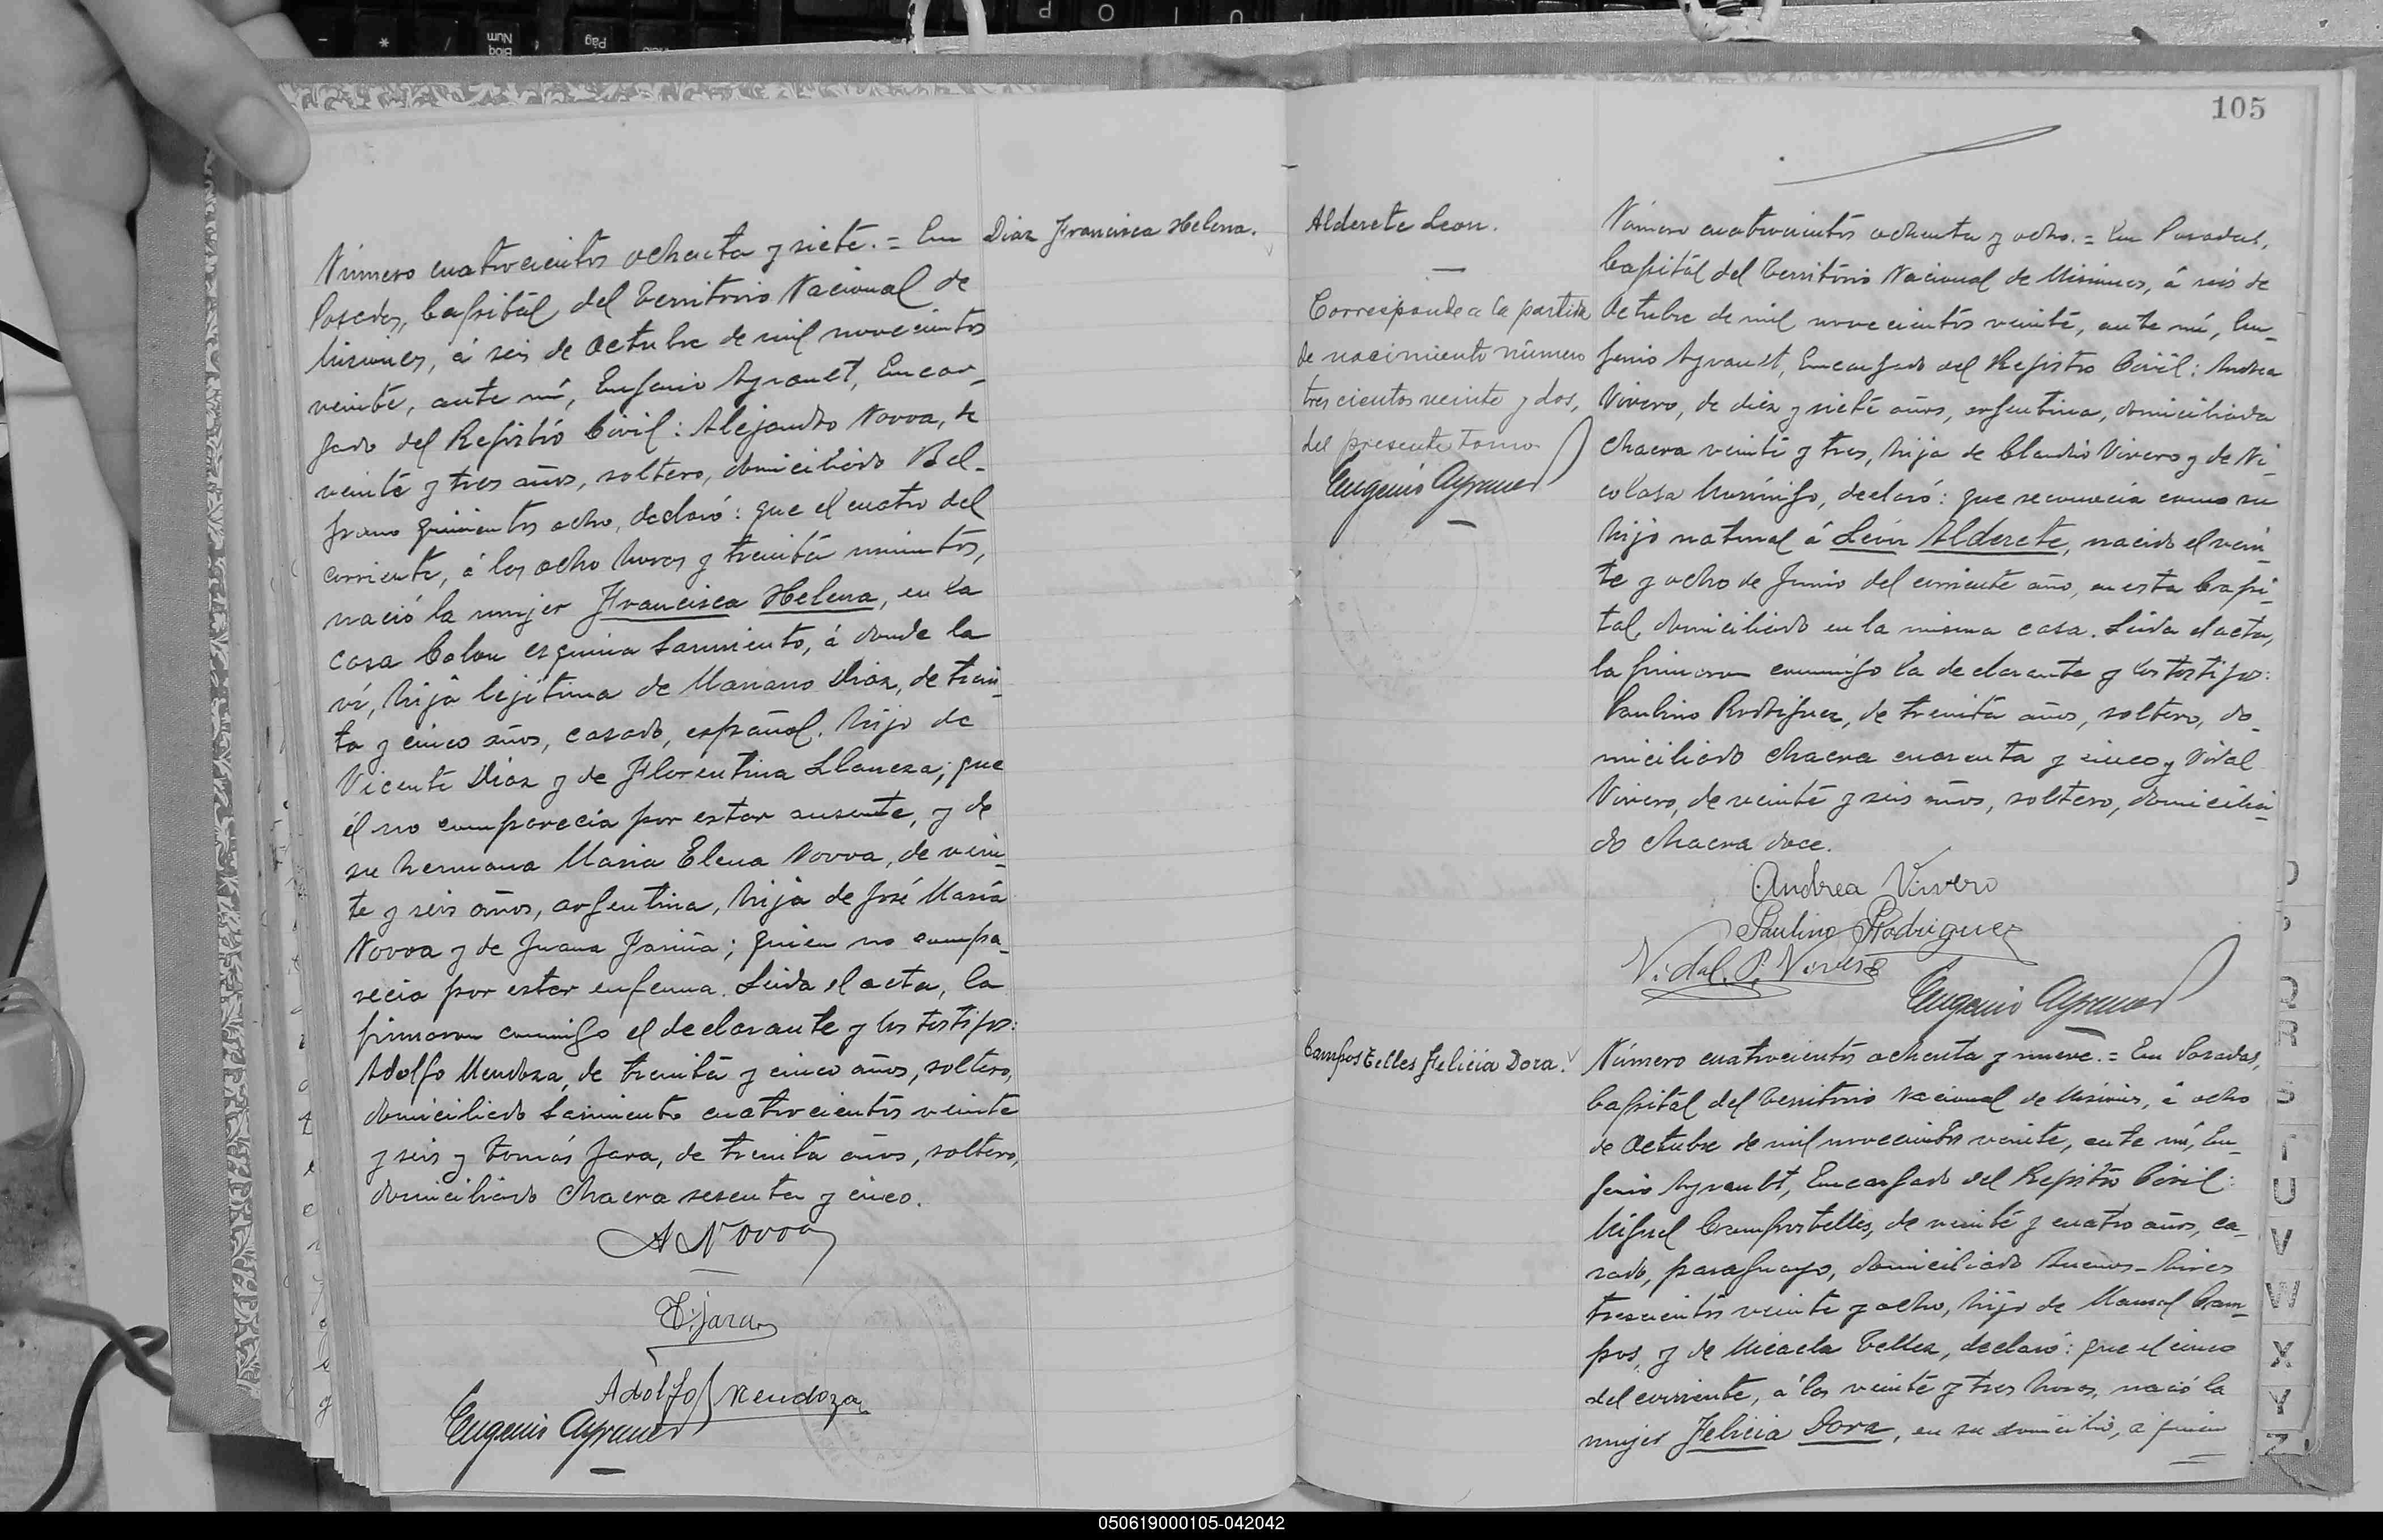 Número cuatrocientos ochenta y siete. = En
Posadas, Capitál del Territorio Nacional de
Misiones, á seis de Octubre de mil novecientos
veinte, ante mí, Eugenio Ayrault, Encar-
gado del Registro Civil: Alejandro Novoa, de
veinte y tres años, soltero, domiciliado Bel-
grano quinientos ocho, declaró: que el cuatro del
corriente, á las ocho horas y treinta minutos,
nació la mujer Francisca Helena, en la
casa Colon esquina Sarmiento, á donde la
ví, hija lejítima de Mariano Diaz, de trein-
ta y cinco años, casado, español, hijo de
Vicente Diaz y de Florentina Llaneza; que
él no comparecia por estar ausente, y de
su hermana Maria Elena Novoa, de vein-
te y seis años, argentina, hija de José María
Novoa y de Juana Fariña; quien no compa-
recia por estar enferma. Leida el acta, la
firmaron conmigo el declarante y los testigos:
Adolfo Mendoza, de treinta y cinco años, soltero,
domiciliado Sarmiento cuatrocientos veinte
y seis y Tomás Jara, de treinta años, soltero,
domiciliado Chacra sesenta y cinco.
A Novoa
T. Jara
Adolfo Mendoza
Eugenio Ayrault
Diaz Francisca Helena.
105
Alderete Leon.
Corresponde a la partida
de nacimiento número
trescientos veinte y dos,
del presente Tomo
Eugenio Ayrault
Número cuatrocientos ochenta y ocho. = En Posadas,
Capitál del Territorio Nacional de Misiones, á seis de
Octubre de mil novecientos veinte, ante mí, Eu-
genio Ayrault, Encargado del Registro Civil: Andrea
Vivero, de diez y siete años, argentina, domiciliada
Chacra veinte y tres, hija de Claudio Vivero y de Ni-
colasa, declaró: que reconocia como su
hijo natural á León Alderete, nacido el vein-
te y ocho de Junio del corriente año, en esta Capi-
tal, domiciliado en la misma casa. Leida el acta,
la firmaron conmigo la declarante y los testigos:
Paulino Rodriguez, de treinta años, soltero, do-
miciliado Chacra cuarenta y cinco y Vidal
Vivero, de veinte y seis años, soltero, domicilia-
do Chacra doce.
Andrea Vivero
Paulino Rodriguez
Vidal. P. Vivero
Eugenio Ayrault
Campos Telles Felicia Dora.
Número cuatrocientos ochenta y nueve. = En Posadas,
Capitál del Territorio Nacional de Misiones, á ocho
de Octubre de mil novecientos veinte, ante mí, Eu-
genio Ayrault, Encargado del Registro Civil:
Miguel Campos telles, de veinte y cuatro años, ca-
sado, paraguayo, domiciliado Buenos-Aires
trescientos veinte y ocho, hijo de Manuel Cam-
pos, y de Micaela Tellez, declaró: que el cinco
del corriente, á las veinte y tres horas, nació la
mujer Felicia Dora, en su domicilio, á quien
Q
R
S
T
U
V
W
X
Y
Z
050619000105-042042